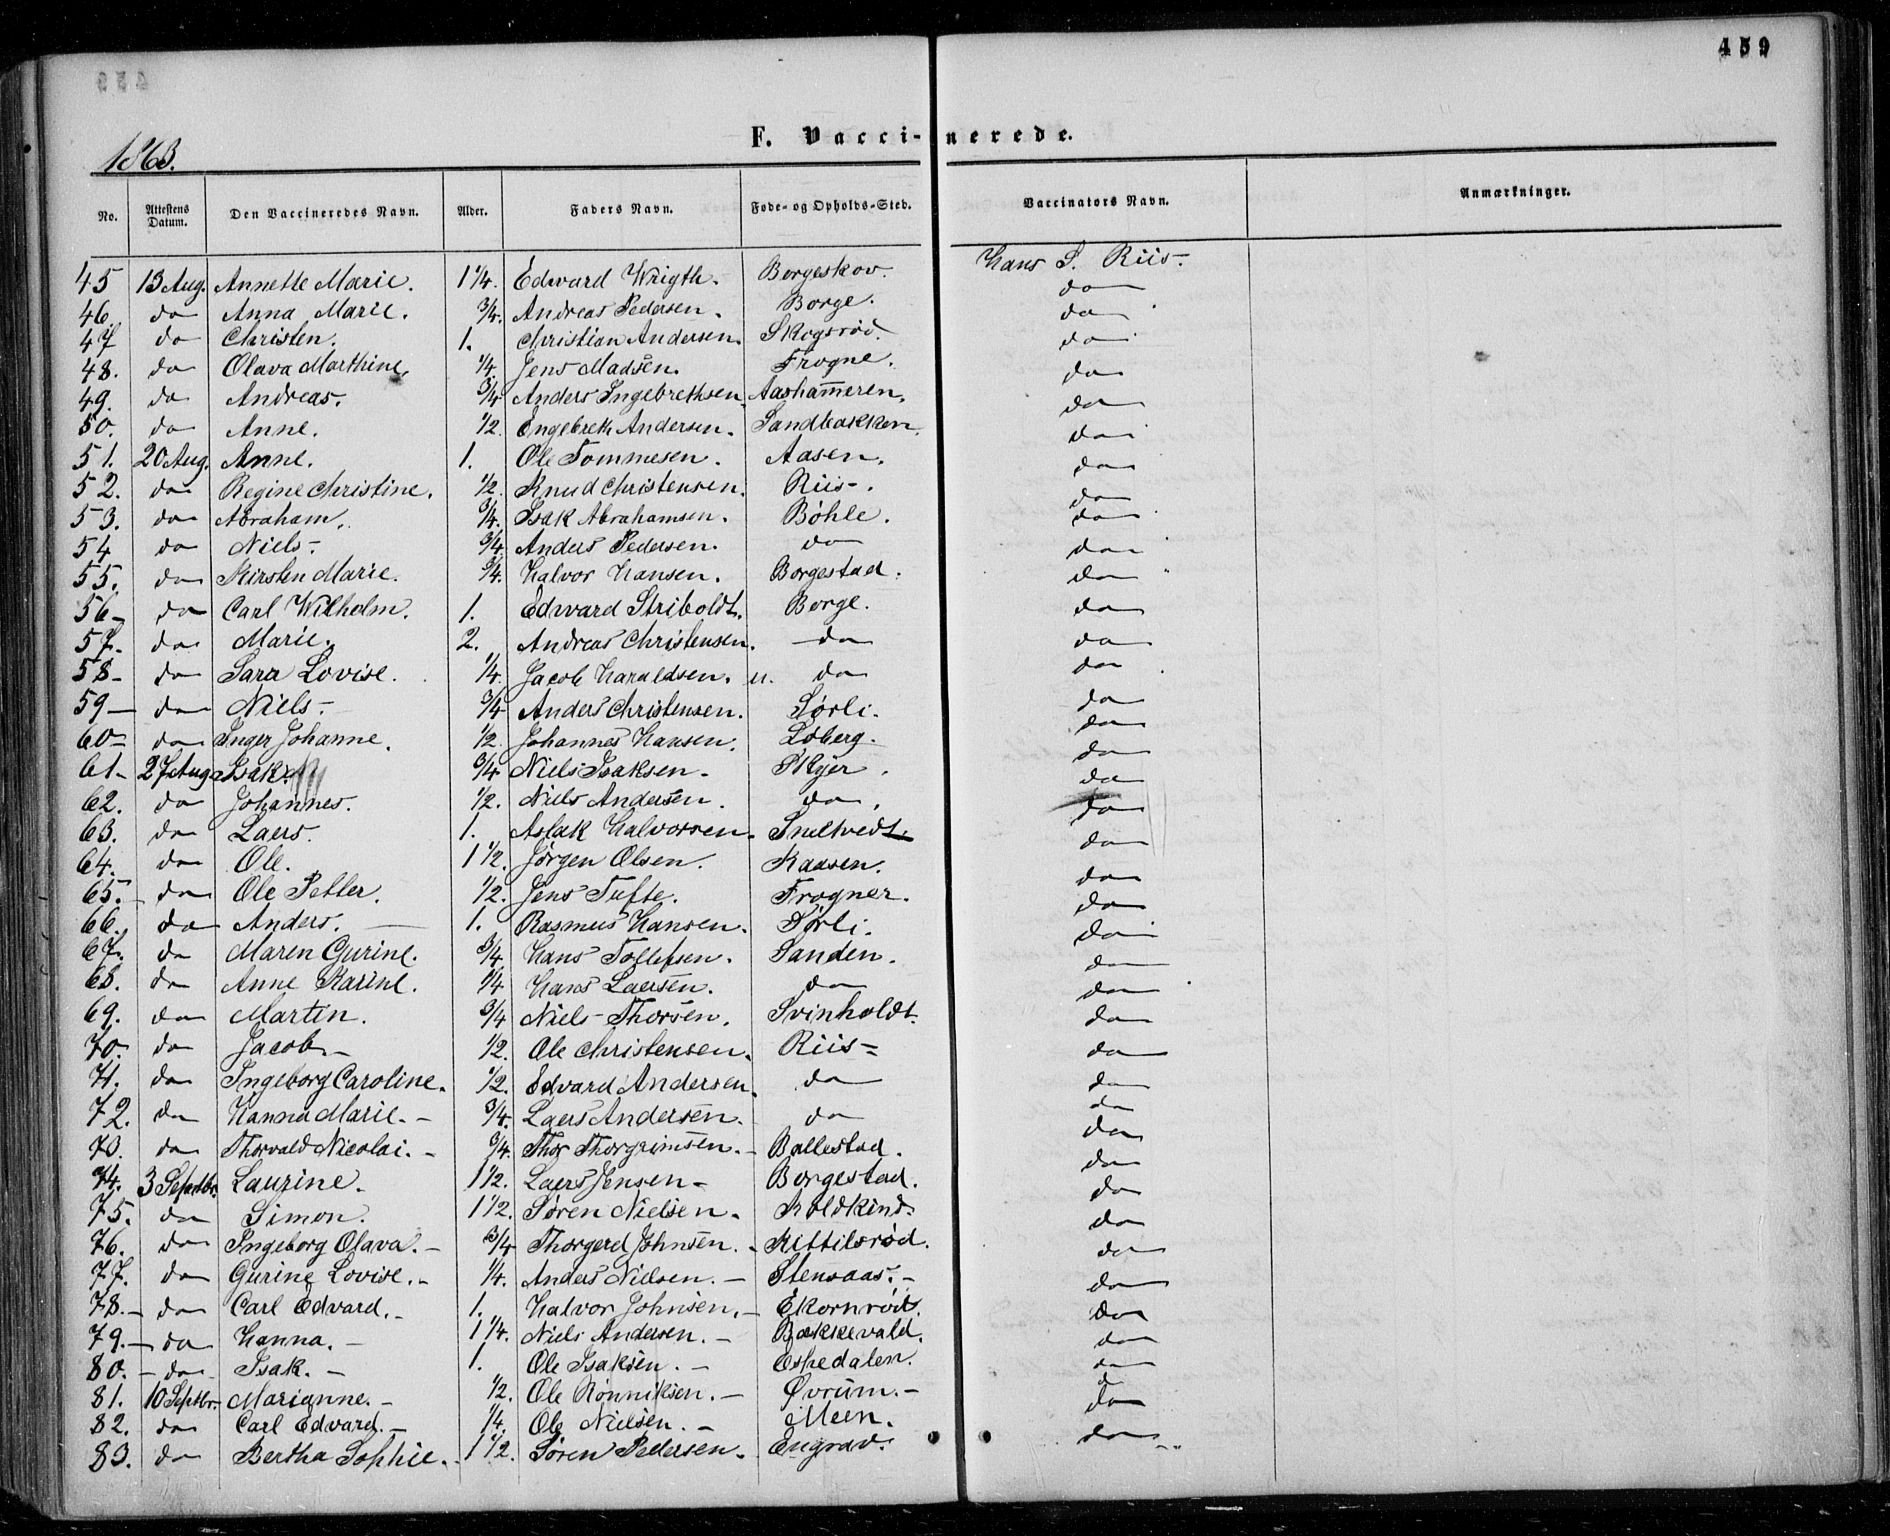 459
F. Vaccinerede.
1863.
No. Attestens Datum. Den Vaccineredes Navn. Alder. Faders Navn. Føde- og Opholds-Sted. Vaccinators Navn. Anmærkninger.
45 13 Aug. Annette Marie. 1 1/4. Edward Wrigth. Borgeskov. Hans S. Riis.
46. do Anna Marie. 3/4. Andreas Pedersen. Borge. do
47 do Christen. 1. Christian Andersen. Skogsrød. do
48. do Olava Marthine. 1/4. Jens Madsen. Frogne. do
49. do Andreas. 3/4 Anders Ingebrethsen. Aashammeren. do
50. do Anne. 1/2. Engebrek Andersen. Sandbakken. do
51. 20 Aug. Anne. 1. Ole Tommesen. Aasen. do
52. do Regine Christine. 1/2. Knud Christensen. Riis. do
53. do Abraham. 3/4. Isak Abrahamsen. Bøhle. do
54 do Niels. 3/4. Anders Pedersen. do do
55. do Kirsten Marie. 3/4. Halvor Hansen. Borgestad. do
56 do Carl Wilhelm. 1. Edward Striboldt. Borge. do
57. do Marie. 2. Andreas Christensen. do do
58 do Sara Lovise. 1/4. Jacob Haraldsen. u. do do
59 do Niels. 3/4 Anders Christensen. Sørli. do
60 do Inger Johanne. 1/2. Johannes Hansen. Løberg. do
61 27 Aug. Isak. 3/4 Niels Isaksen. Skyer. do
62. do Johannes. 1/2. Niels Andersen. do. do
63. do Laers. 1. Aslak Halvorsen. Sneltvedt. do
64. do Ole. 1 1/2. Jørgen Olsen. Kaasen. do
65. do Ole Petter. 1/2. Jens Tufte. Frogner. do
66. do Anders. 1. Rasmus Hansen. Sørli. do
67. do Maren Gurine. 3/4. Hans Tollefsen. Sanden. do
68. do Anne Karine. 1/4 Hans Laersen. do do
69. do Martin. 3/4 Niels Thorsen. Svinholdt. do
70. do Jacob. 1/2. Ole Christensen. Riis do
71. do Ingeborg Caroline. 1/2. Edvard Andersen. do do
72. do Hanna Marie. 3/4. Laers Andersen. do do
73. do Thorvald Nicolai. 3/4. Thor Thorgrimsen. Ballestad. do
74. 3 Septbr. Laurine. 1 1/2. Laers Jensen Borgestad. do
75. do Simon. 1 1/2. Søren Nielsen. Koldkind. do
76. do Ingeborg Olava. 3/4 Thorgerd Johnsen. Kittilsrød. do
77. do Gurine Lovise. 1/4. Anders Nielsen. Stensaas. do
78. do Carl Edvard. 1. Halvor Johnsen. Ekornrød. do
79. do Hanna. 1 1/4. Niels Andersen. Bækkevald. do
80. do Isak. 1. Ole Isaksen. Espedalen. do
81. 10 Septbr. Marianne. 1/2. Ole Rønniksen. Øvrum. do
82. do Carl Edvard. 1/4. Ole Nielsen. Meen. do
83. do Bertha Sophie. 1 1/2. Søren Pedersen. Engrav. do